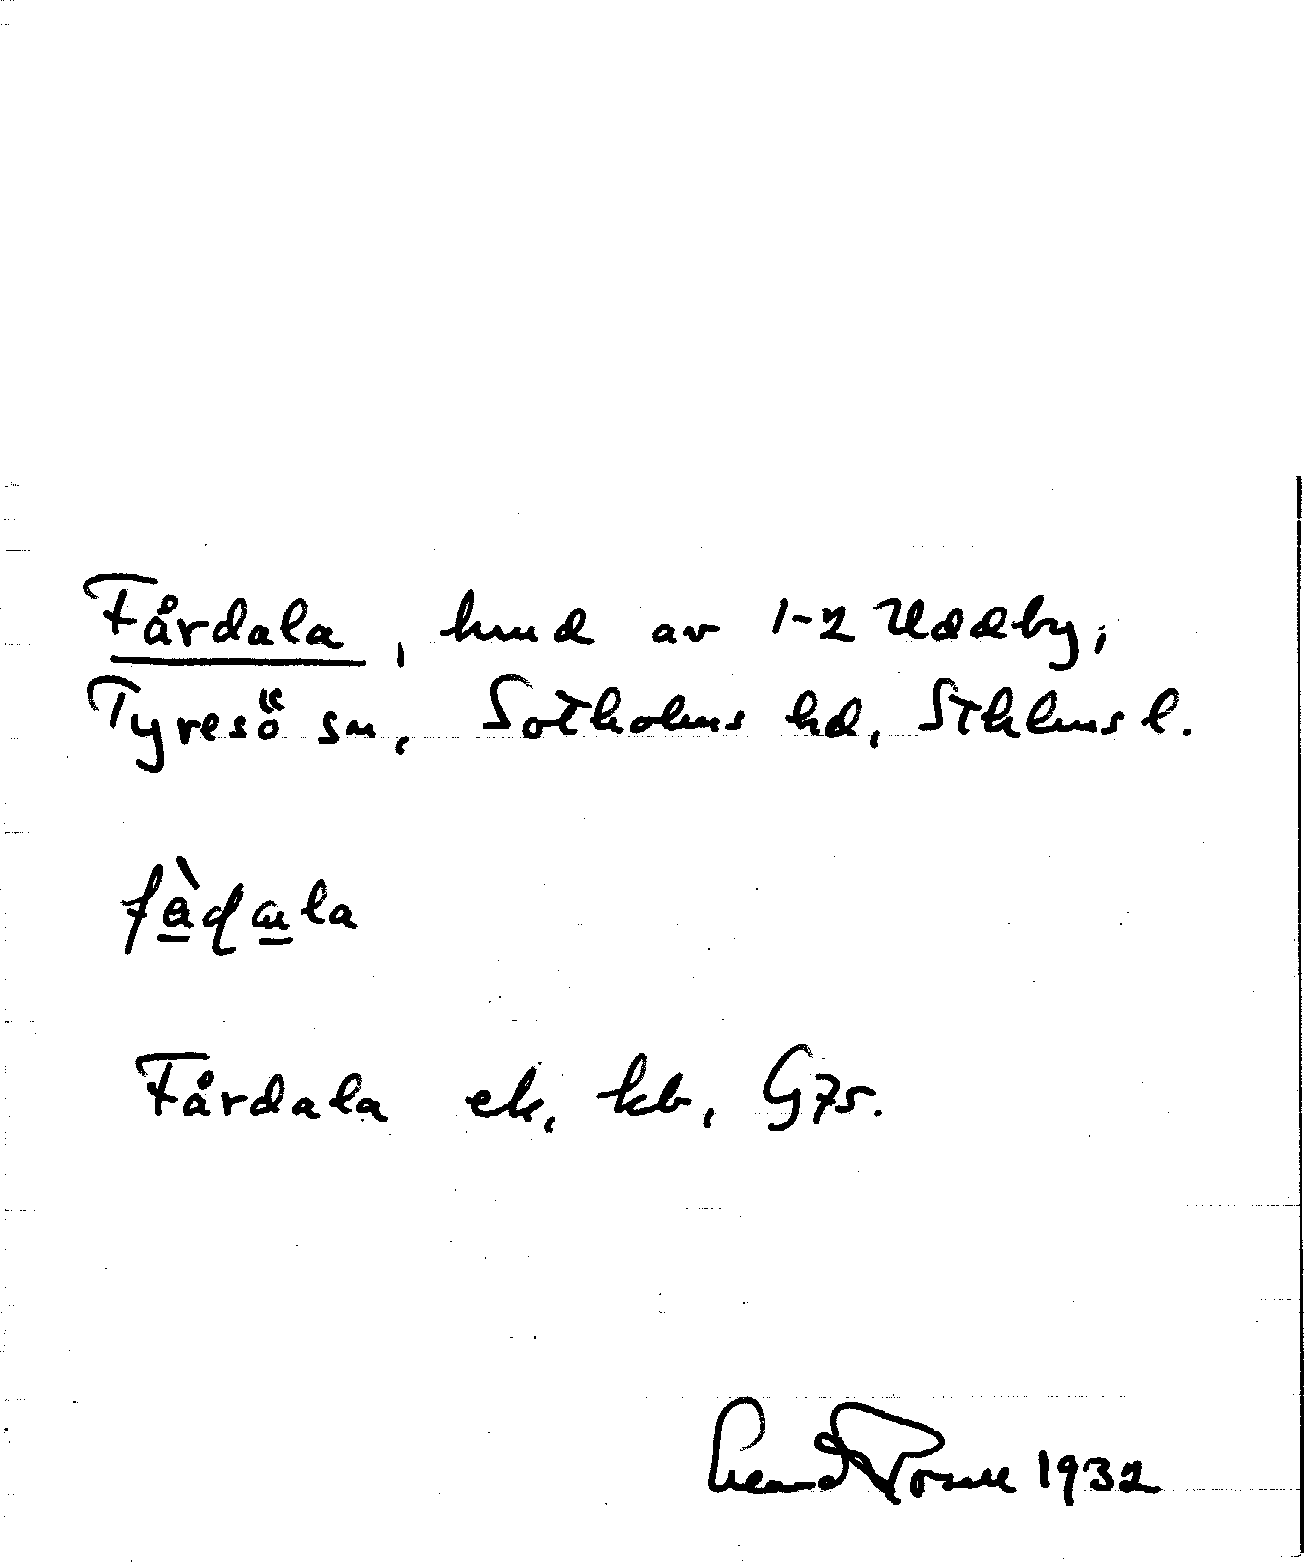 Fårdala, hmd av 1-2 Uddby,
Tyresö sn, Sotholms hd, Sthlms l.
Fårdala ek, kb, G75.
1932